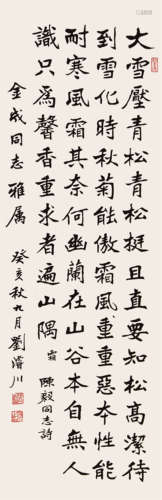 大雪壓青松青松挺且直要知松高潔待
到雪化時秋菊能傲霜風重重惡本性能
耐寒風霜其奈何幽蘭在山谷本自無人
識只爲馨香重求者遍山隅 霜 陳毅同志詩
金成同志雅屬 癸亥秋九月劉濬川